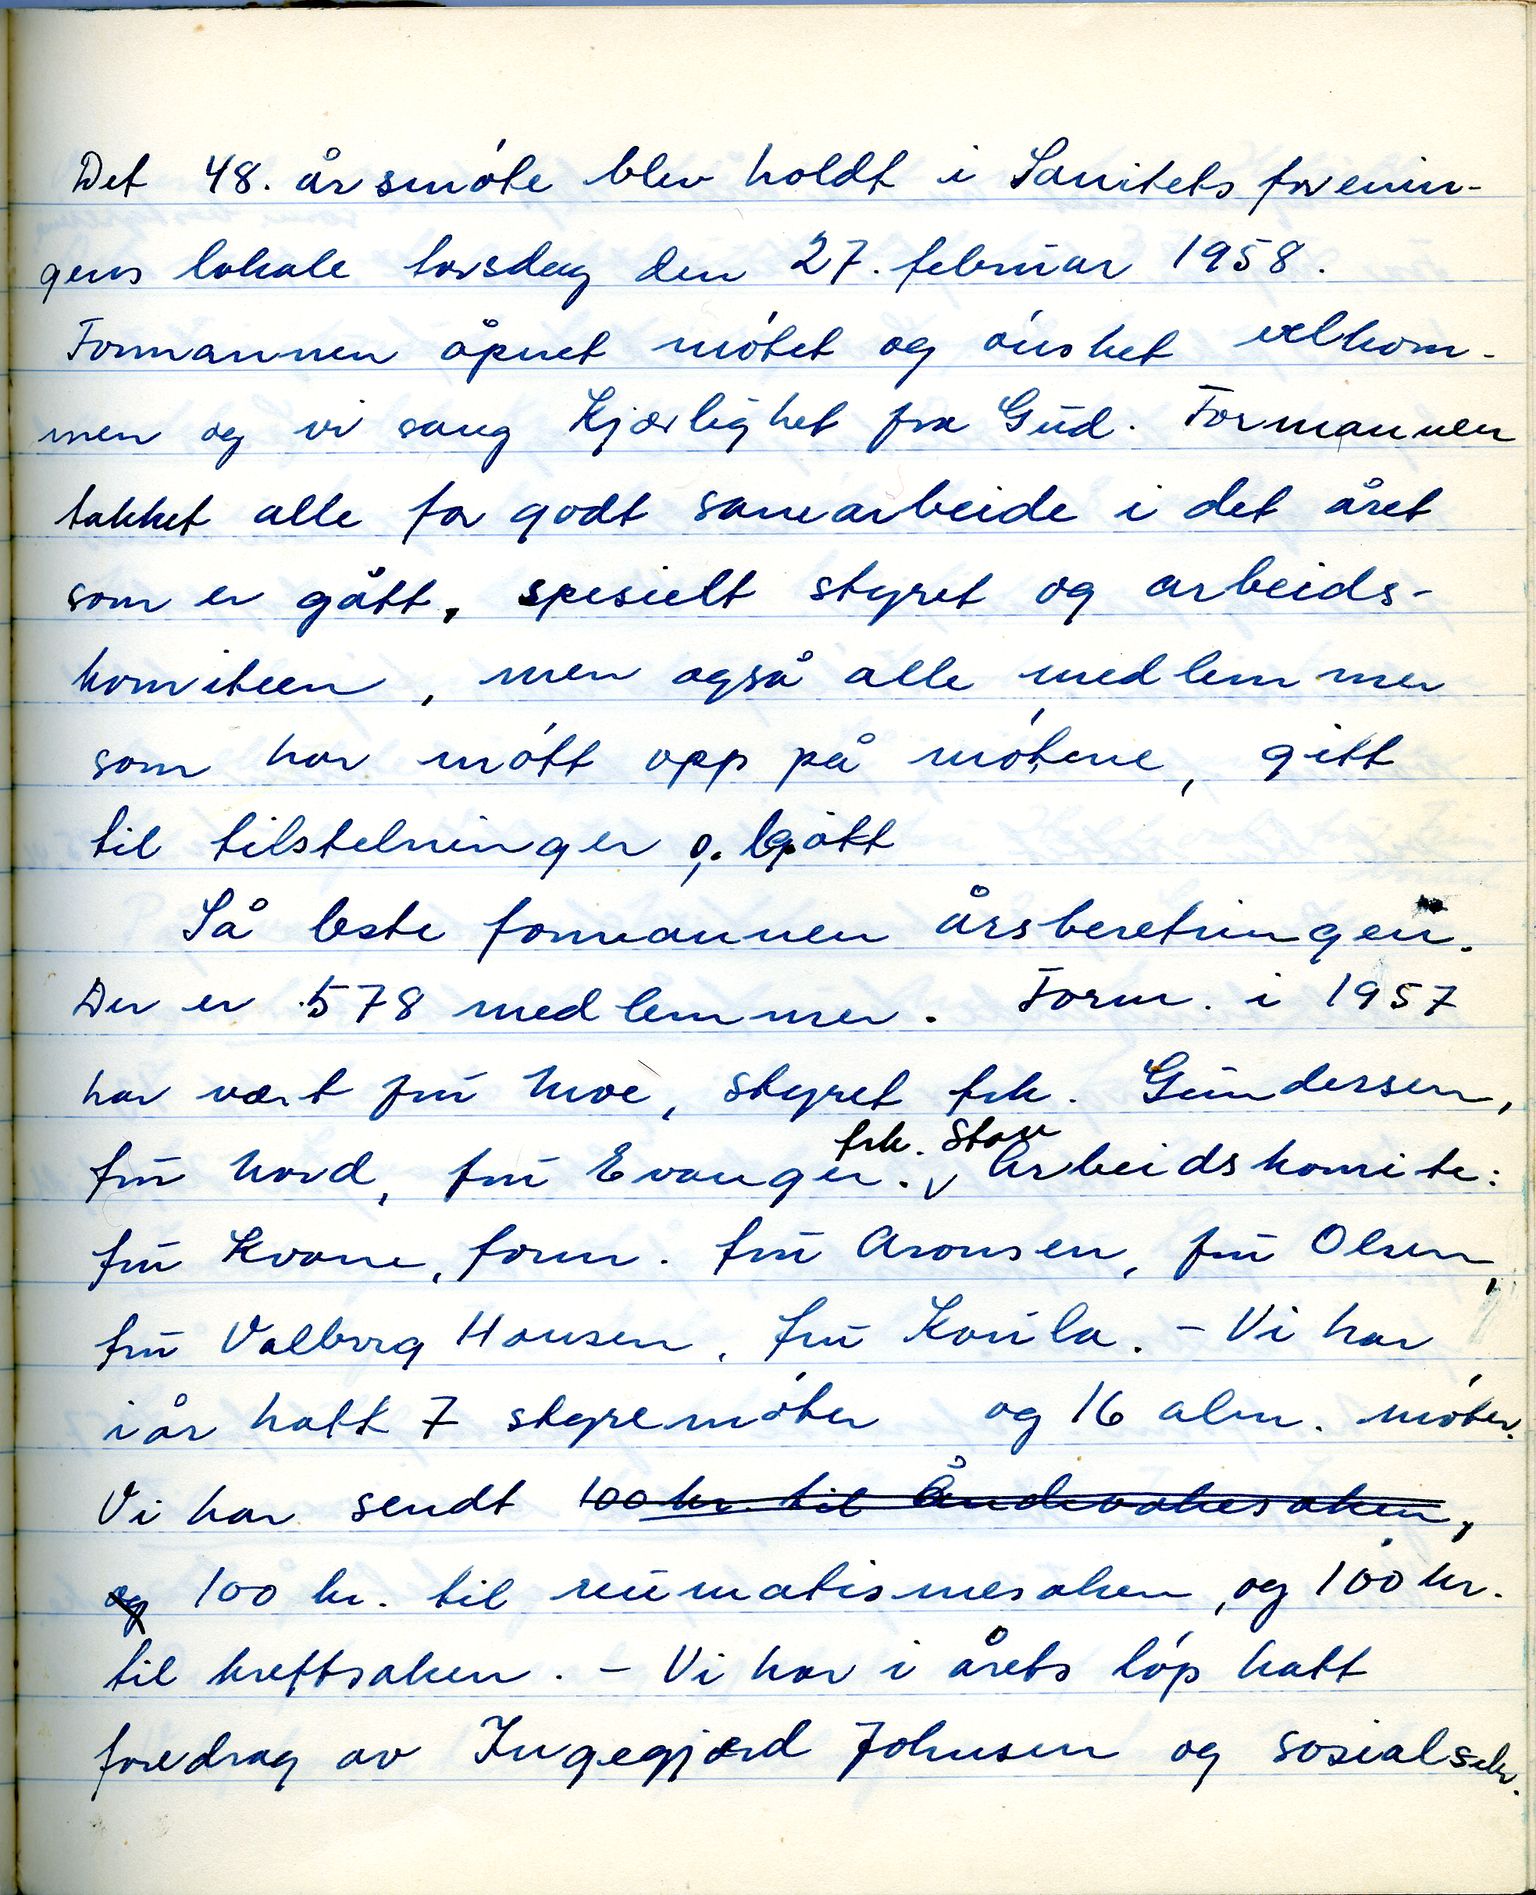 Det 48. årsmøte blev holdt i Sanitetsforenin-
gens lokale torsdag den 27. februar 1958.
Formannen åpnet møtet og ønsket velkom-
men og vi sang Kjærlighet fra Gud. Formannen
takket alle for godt samarbeide i det året
som er gått, spesielt styret og arbeids-
komiteen, men også alle medlemmer
som har møtt opp på møtene, gitt
til tilstelninger o.
Så leste formannen årsberetningen.
Der er 578 medlemmer. Form. i 1957
har vært fru Moe, styret frk. Gundersen,
fru Nord, fru Evanger. frk. Stav Arbeidskomite:
fru Kvane, form. fru Aronsen, fru Olsen,
fru Valborg Hansen, fru Karula. - Vi har
i år hatt 7 styremøter og 16 alm. møter.
Vi har sendt 100 kr. til Åndsvakesaken,
og 100 kr. til reumatismesaken, og 100 kr.
til kreftsaken. - Vi har i årets løp hatt
foredrag av Ingegjærd Johnsen og sosialsekr.